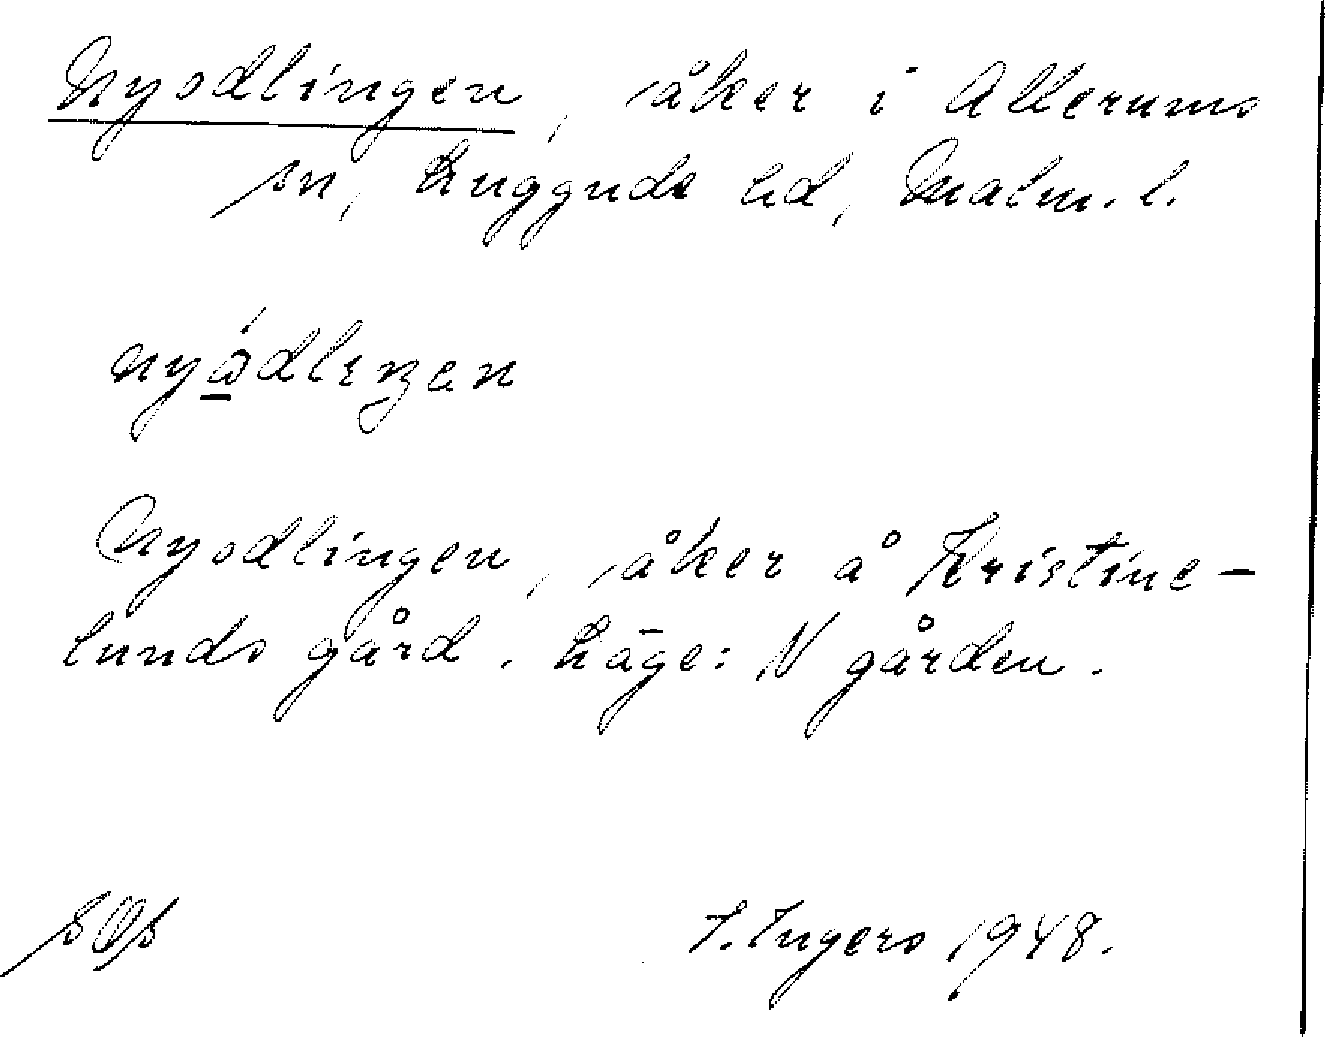 Nyodlingen, åker i Allerums
sn, Luggude hd, Malm. l.
Nyodlingen, åker å Kristine-
lunds gård. Läge: N gården.
I. Ingers 1948.